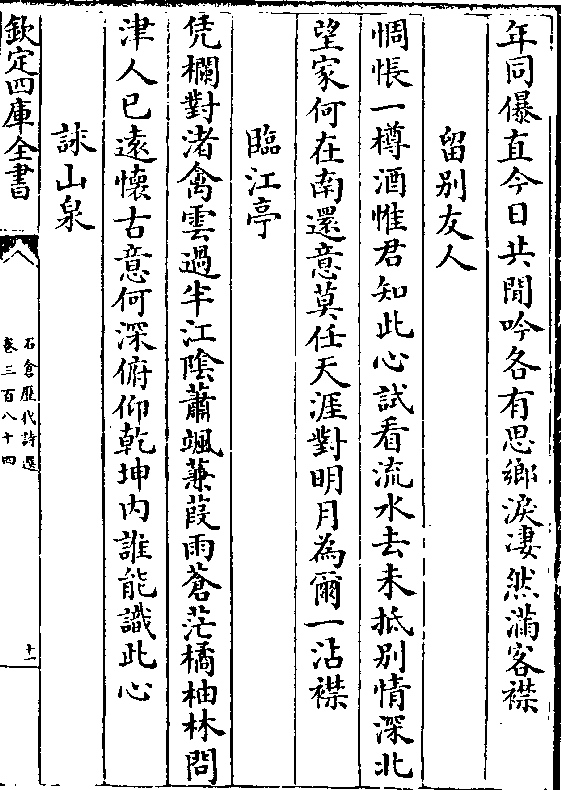 年同儤直今日共閒吟各有思鄉淚凄然滿客襟
留别友人
惆悵一樽酒惟君知此心試看流水去未抵别情深北
望家何在南還意莫任天涯對明月為爾一沾襟
臨江亭
凭欄對渚禽雲過半江陰蕭颯蒹葭雨蒼茫橘柚林問
津人已遠懷古意何深俯仰乾坤内誰能識此心
詸山泉
欽定四庫全書
石倉歴代詩選
卷三百八十四
十一